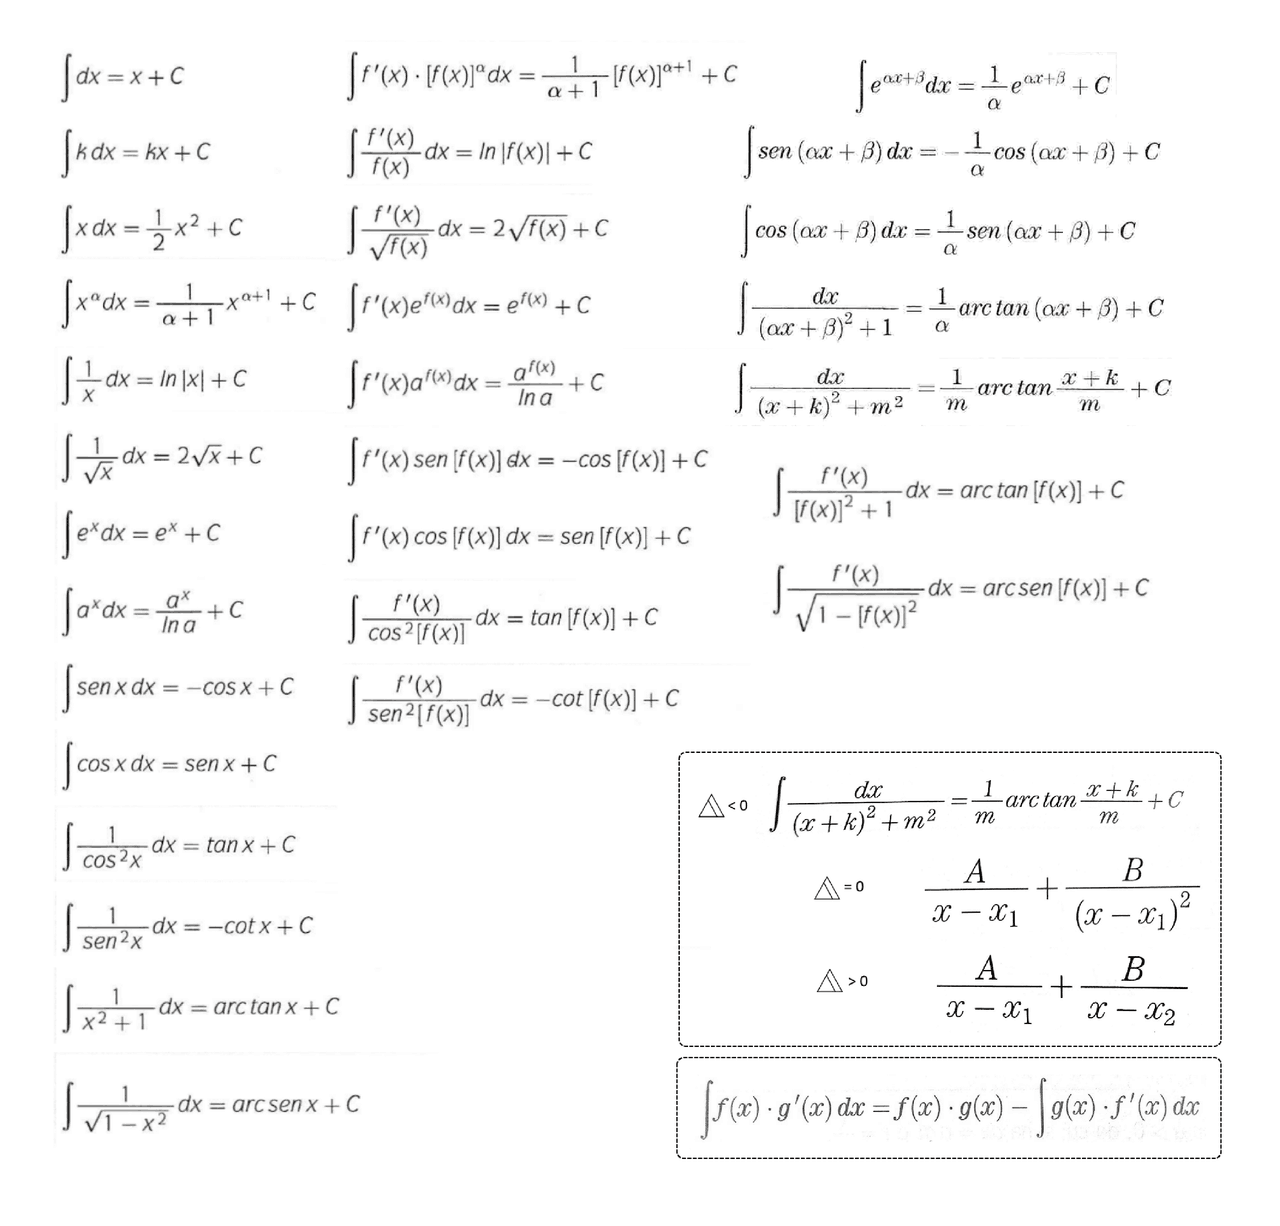 ∫dx = x + C
∫k dx = kx + C
∫x dx = 1/2 x² + C
∫x^α dx = 1/(α + 1) x^(α+1) + C
∫1/x dx = ln |x| + C
∫1/√x dx = 2√x + C
∫e^x dx = e^x + C
∫a^x dx = a^x/ln a + C
∫sen x dx = −cos x + C
∫cos x dx = sen x + C
∫1/cos²x dx = tan x + C
∫1/sen²x dx = −cot x + C
∫1/(x² + 1) dx = arc tan x + C
∫1/√(1 − x²) dx = arc sen x + C
∫f'(x) · [f(x)]^α dx = 1/(α + 1) [f(x)]^(α+1) + C
∫f'(x)/f(x) dx = ln |f(x)| + C
∫f'(x)/√f(x) dx = 2√f(x) + C
∫f'(x)e^f(x) dx = e^f(x) + C
∫f'(x)a^f(x) dx = a^f(x)/ln a + C
∫f'(x) sen [f(x)] dx = −cos [f(x)] + C
∫f'(x) cos [f(x)] dx = sen [f(x)] + C
∫f'(x)/cos²[f(x)] dx = tan [f(x)] + C
∫f'(x)/sen²[f(x)] dx = −cot [f(x)] + C
∫e^(αx+β) dx = 1/α e^(αx+β) + C
∫sen (αx + β) dx = − 1/α cos (αx + β) + C
∫cos (αx + β) dx = 1/α sen (αx + β) + C
∫dx/((αx + β)² + 1) = 1/α arc tan (αx + β) + C
∫dx/((x + k)² + m²) = 1/m arc tan (x + k)/m + C
∫f'(x)/([f(x)]² + 1) dx = arc tan [f(x)] + C
∫f'(x)/√(1 − [f(x)]²) dx = arc sen [f(x)] + C
△ < 0 ∫dx/((x + k)² + m²) = 1/m arc tan (x + k)/m + C
△ = 0 A/(x − x₁) + B/(x − x₁)²
△ > 0 A/(x − x₁) + B/(x − x₂)
∫f(x) · g'(x) dx = f(x) · g(x) − ∫g(x) · f'(x) dx